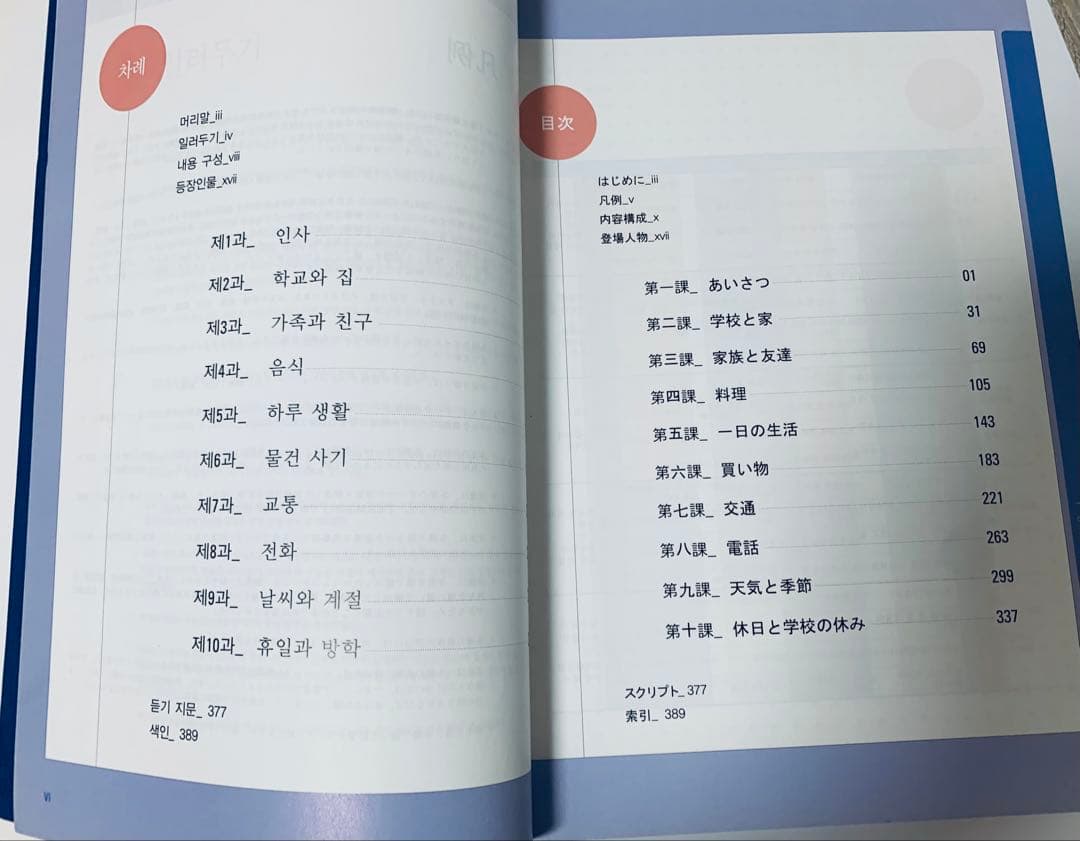 차례
머리말_iii
일러두기_iv
내용 구성_viii
등장인물_xvii
제1과_ 인사
제2과_ 학교와 집
제3과_ 가족과 친구
제4과_ 음식
제5과_ 하루 생활
제6과_ 물건 사기
제7과_ 교통
제8과_ 전화
제9과_ 날씨와 계절
제10과_ 휴일과 방학
듣기 지문_ 377
색인_ 389
vi
目次
はじめに_iii
凡例_v
内容構成_x
登場人物_xvii
第一課_ あいさつ 01
第二課_ 学校と家 31
第三課_ 家族と友達 69
第四課_ 料理 105
第五課_ 一日の生活 143
第六課_ 買い物 183
第七課_ 交通 221
第八課_ 電話 263
第九課_ 天気と季節 299
第十課_ 休日と学校の休み 337
スクリプト_ 377
索引_ 389